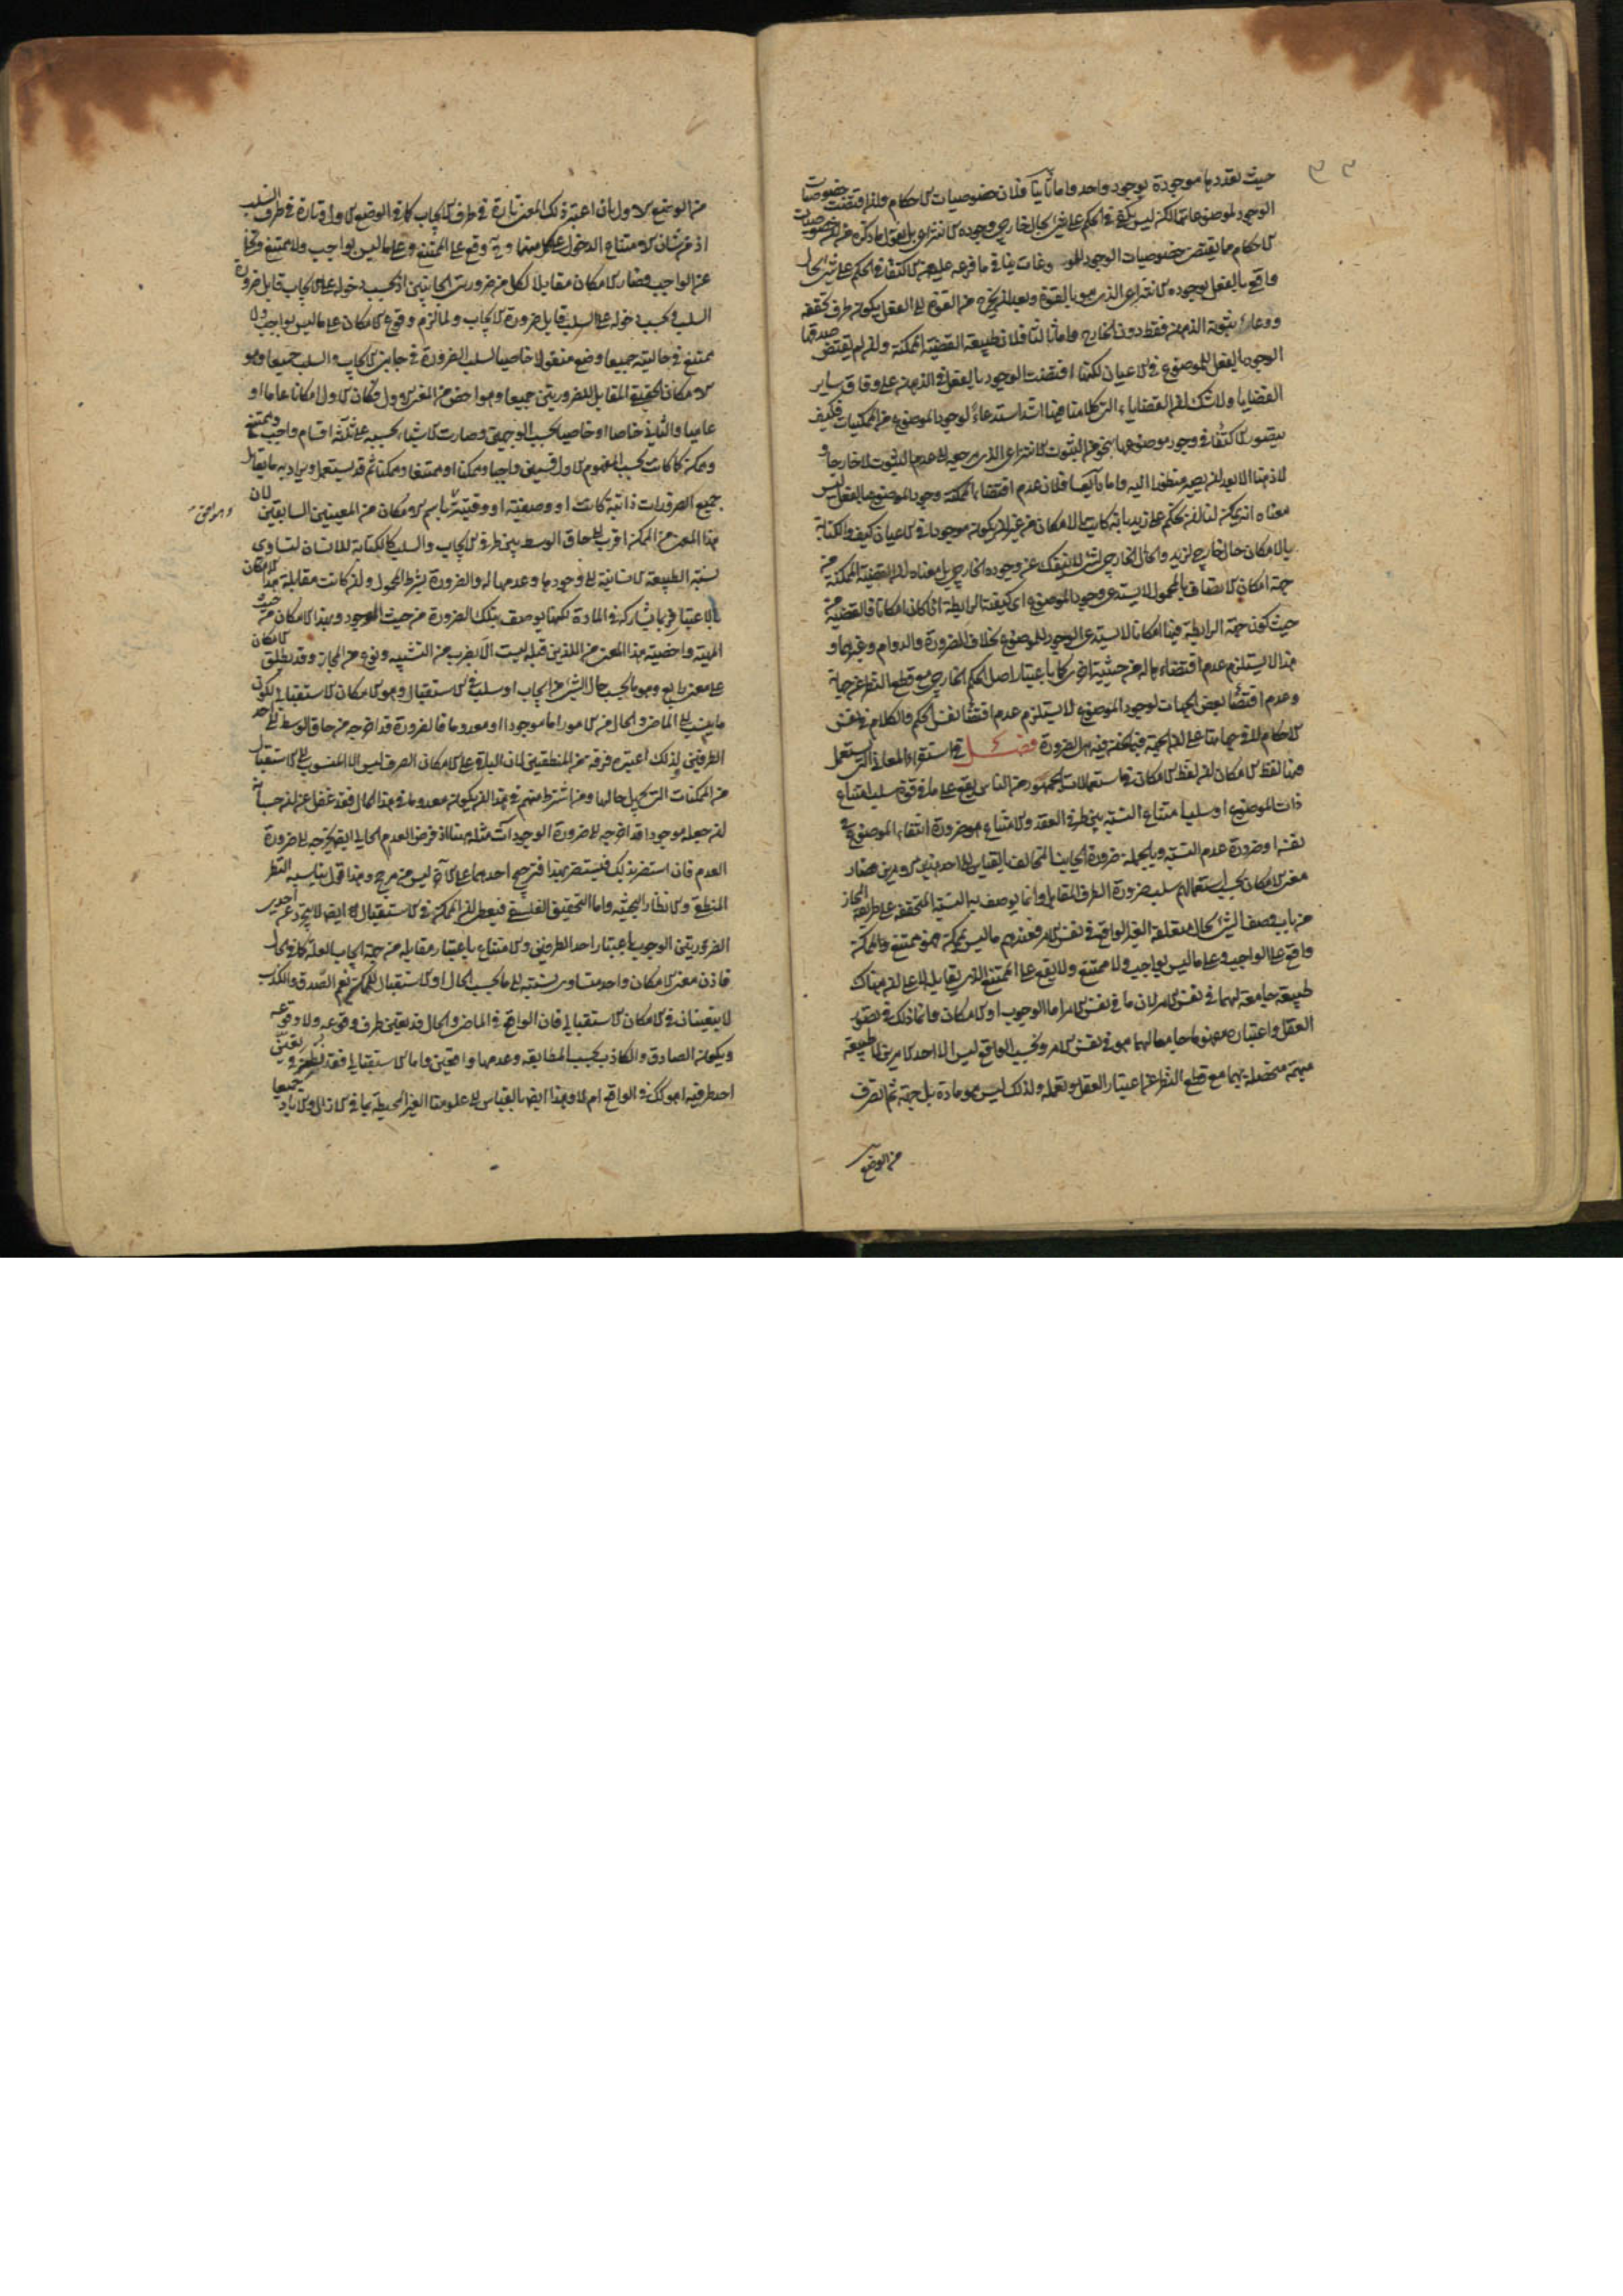 حيث تعددها موجودة بوجود واحد واما ثانيا فلان خصوصيات الاحكام وان اقتضت خصوصيات
الوجود لموضوعاتها لكن ليس يكفي في الحكم على شئ بحال خارجي وجوده الانتزاعي
الاحكام مما يقتضي خصوصيات الوجود
واقع بالفعل بوجوده الانتزاعي الذي هو بالقوة وبعد لم يخرج من القوة الى الفعل بكونه ظرف تحققه
ووعاء ثبوته الذهن فقط دون الخارج واما ثالثا فلان طبيعة القضية الممكنة وان لم يقتض صدقها
الوجود بالفعل للموضوع في الاعيان لكنها اقتضت الوجود بالفعل في الذهن على وفاق ساير
القضايا ولا شك ان القضايا التي كلامنا فيها اشد استدعاء لوجود الموضوع من الممكنات فكيف
يتصور الاكتفاء في وجود موضوعها بنحو من الثبوت الانتزاعي الذي مرجعه الى عدم الثبوت لا خارجا و
لا ذهنا الا بعد ان يصير منظورا اليه واما رابعا فلان عدم اقتضاء الممكنة وجود الموضوع بالفعل ليس
معناه انه يمكن لنا ان نحكم على زيد بانه كاتب بالامكان من غير ان يكون موجودا في الاعيان كيف والكتابة
بالامكان حال خارجي لزيد والحال الخارجي لشئ لا ينفك عن وجوده الخارجي بل معناه ان القضية الممكنة من
جهة امكان الاتصاف بالمحمول لا يستدعي وجود الموضوع اي كيفية الرابطة اذا كان امكانا فالقضية من
حيث كون جهة الرابطة فيها امكانا لا يستدعي الوجود للموضوع بخلاف الضرورة والدوام وغيرهما و
هذا لا يستلزم عدم اقتضاءها له من حيثية اخرى كما باعتبار اصل الحكم الخارجي مع قطع النظر عن جهاته
وعدم اقتضاء بعض الجهات لوجود الموضوع لا يستلزم عدم اقتضاء نفس الحكم والكلام في نفس
الاحكام لا في جهاتها على ان الجهة فيما نحن فيه هي الضرورة فصل في استقراء المعاني التي يستعمل
فيها لفظ الامكان ان لفظ الامكان في استعمالات الجمهور من الناس يقع على ما في قوة سلب امتناع
ذات الموضوع او سلب امتناع النسبة بين طرفي العقد والامتناع هو ضرورة انتفاء الموضوع في
نفسه او ضرورة عدم النسبة وبالجملة ضرورة الجانب المخالف بالقياس الى احد هذين الامرين فصار
معنى الامكان بحسب استعمالهم سلب ضرورة الطرف المقابل وانما يوصف به النسبة المتحققة على طريقة المجاز
من باب وصف الشئ بحال متعلقه الغير الواقع في نفس الامر فعندهم ما ليس بممكن فهو ممتنع والممكن
واقع على الواجب وعلى ما ليس بواجب ولا ممتنع ولا يقع على الممتنع الذي يقابله لا على ان هناك
طبيعة جامعة لهما في نفس الامر لان ما في نفس الامر اما الوجوب او الامكان وانما ذلك في تصور
العقل واعتباره مفهوما جامعا لهما هو في نفس الامر وبحسب الواقع ليس الا احد الامرين لا طبيعة
مبهمة متحصلة بهما مع قطع النظر عن اعتبار العقل وتعمله ولذلك ليس هو مادة بل جهة ثم تصرف
من الوضع
من الوضع الاول بان اعتبر ذلك المعنى تارة في طرف الايجاب كما في الوضع الاول وتارة في طرف السلب
اذ من شان الامتناع الدخول على كل منهما وبه وقع على الممتنع وعلى ما ليس بواجب ولا ممتنع وتخلى
عن الواجب فصار الامكان مقابلا لكل من ضرورتي الجانبين اذ بحسب دخوله على الايجاب قابل ضرورة
السلب وبحسب دخوله على السلب قابل ضرورة الايجاب ولما لزم وقوع الامكان على ما ليس بواجب ولا
ممتنع في حالتيه جميعا وضع منقولا خاصيا لسلب الضرورة في جانبي الايجاب والسلب جميعا وهو
الامكان الحقيقي المقابل للضرورتين جميعا وهو اخص من المعنى الاول فكان الاول امكانا عاما او
عاميا والثاني خاصا او خاصيا بحسب الوجهين وصارت الاشياء بحسبه على ثلثة اقسام واجب وممتنع
وممكن كما كانت بحسب المفهوم الاول قسمين واجبا وممكنا او ممتنعا وممكنا ثم قد يستعمل ويراد به ما يقابل
جميع الضرورات ذاتية كانت او وصفية او وقتية باسم الامكان من المعنيين السابقين لان
هذا المعنى من الممكن اقرب الى حاق الوسط بين طرفي الايجاب والسلب كالكتابة للانسان لتساوي
نسبة الطبيعة الانسانية الى وجودها وعدمها له والضرورة بشرط المحمول وان كانت مقابلة لهذا الامكان
بالاعتبار فربما يشاركه في المادة لكنها يوصف بتلك الضرورة من حيث الوجود وبهذا الامكان من حيث
المهية واخصية هذا المعنى من اللذين قبله ليست الا بضرب من التشبيه ونوع من المجاز وقد يطلق الامكان
على معنى رابع وهو ما بحسب حال الشئ من ايجاب او سلب في الاستقبال وهو الامكان الاستقبالي لكون
ما ينسب الى الماضي والحال من الامور اما موجودا او معدوما فالضرورة قد اخرجه من حاق الوسط الى احد
الطرفين ولذلك اعتبره فرقة من المنطقيين لان الباقي على الامكان الصرف ليس الا المنسوب الى الاستقبال
من الممكنات التي يجهل حالها ومن اشترط منهم في هذا ان يكون معدوما في هذا الحال فقد غفل عن ان حسبانه
ان جعله موجودا قد اخرجه الى ضرورة الوجود آت مثله ههنا اذ فرض العدم الحالي ايضا يخرجه الى ضرورة
العدم فان استضر بذلك فليستضر بهذا فترجيح احدهما على الآخر ليس من مرجح وهذا قول يناسبه النظر
المنطقي والانظار البحثية واما التحقيق الفلسفي فيعطي ان الممكن في الاستقبال ايضا لا يتجرد عن احدى
الضرورتين الوجوب باعتبار احد الطرفين والامتناع باعتبار مقابله من جهة ايجاب العلة كما في الحال
فاذن معنى الامكان واحد متساوي نسبته الى ما بحسب الحال او الاستقبال للممكن نعم الصدق والكذب
لا يتعينان في الامكان الاستقبالي فان الواقع في الماضي والحال قد يتعين طرف وقوعه ولا وقوعه
ويكون الصادق والكاذب بحسب المطابقة وعدمها واقعين واما الاستقبالي فقد نظر في تعين
احد طرفيه اهو كك في الواقع ام لا وهذا ايضا بالقياس الى علومنا الغير المحيطة بما في الازال والاباد جميعا